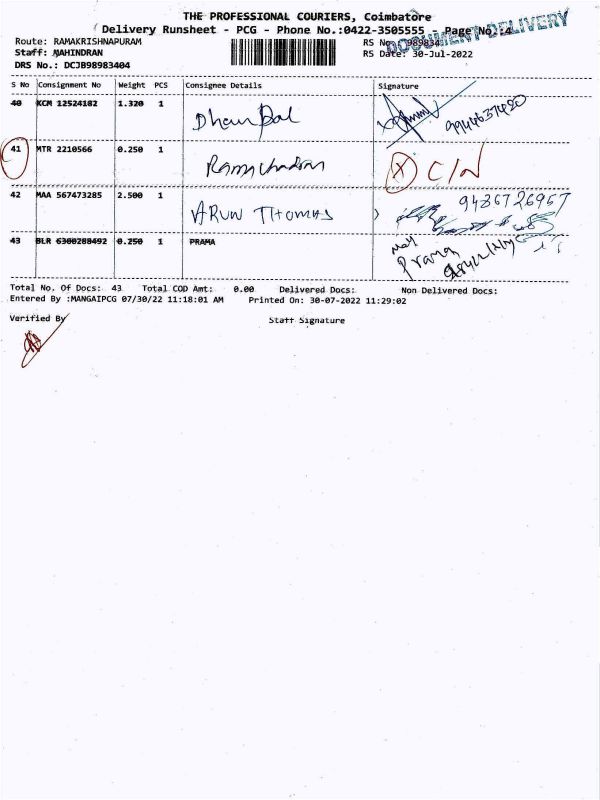 THE PROFESSIONAL COURIERS, Coimbatore
Delivery Runsheet - PCG - Phone No.:0422-3505555 - Page No.:4
DOCUMENT DELIVERY
Route: RAMAKRISHNAPURAM RS No.: 989834
Staff: MAHINDRAN RS Date: 30-Jul-2022
DRS No.: DCJB98983404
S No Consignment No Weight PCS Consignee Details Signature
40 KCM 12524182 1.320 1 9944637420
41 MTR 2210566 0.250 1 Ramachandran X C/N
42 MAA 567473285 2.500 1 ARUN THOMAS 9486726967
43 BLR 6300288492 0.250 1 PRAMA Prama
Total No. Of Docs: 43 Total COD Amt: 0.00 Delivered Docs: Non Delivered Docs:
Entered By :MANGAIPCG 07/30/22 11:18:01 AM Printed On: 30-07-2022 11:29:02
Verified By Staff Signature